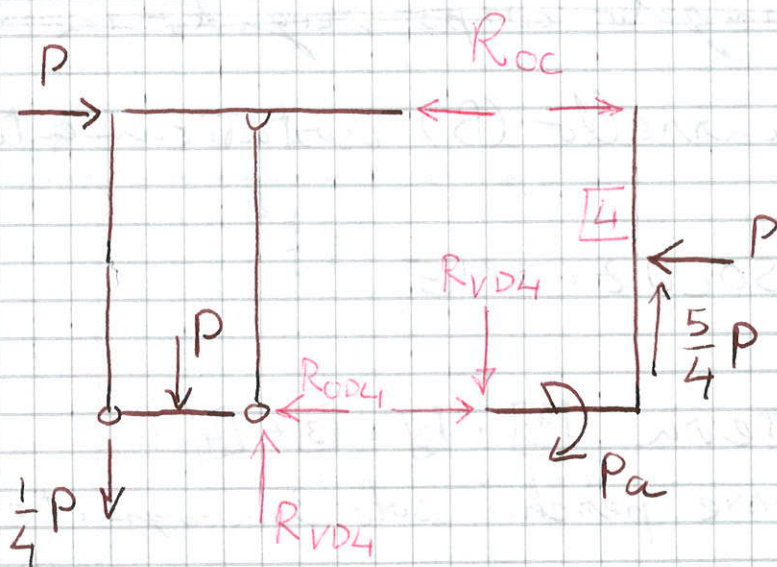 P
R_OC
4
P
R_VD4
5/4 P
P
R_OD4
Pa
1/4 P
R_VD4